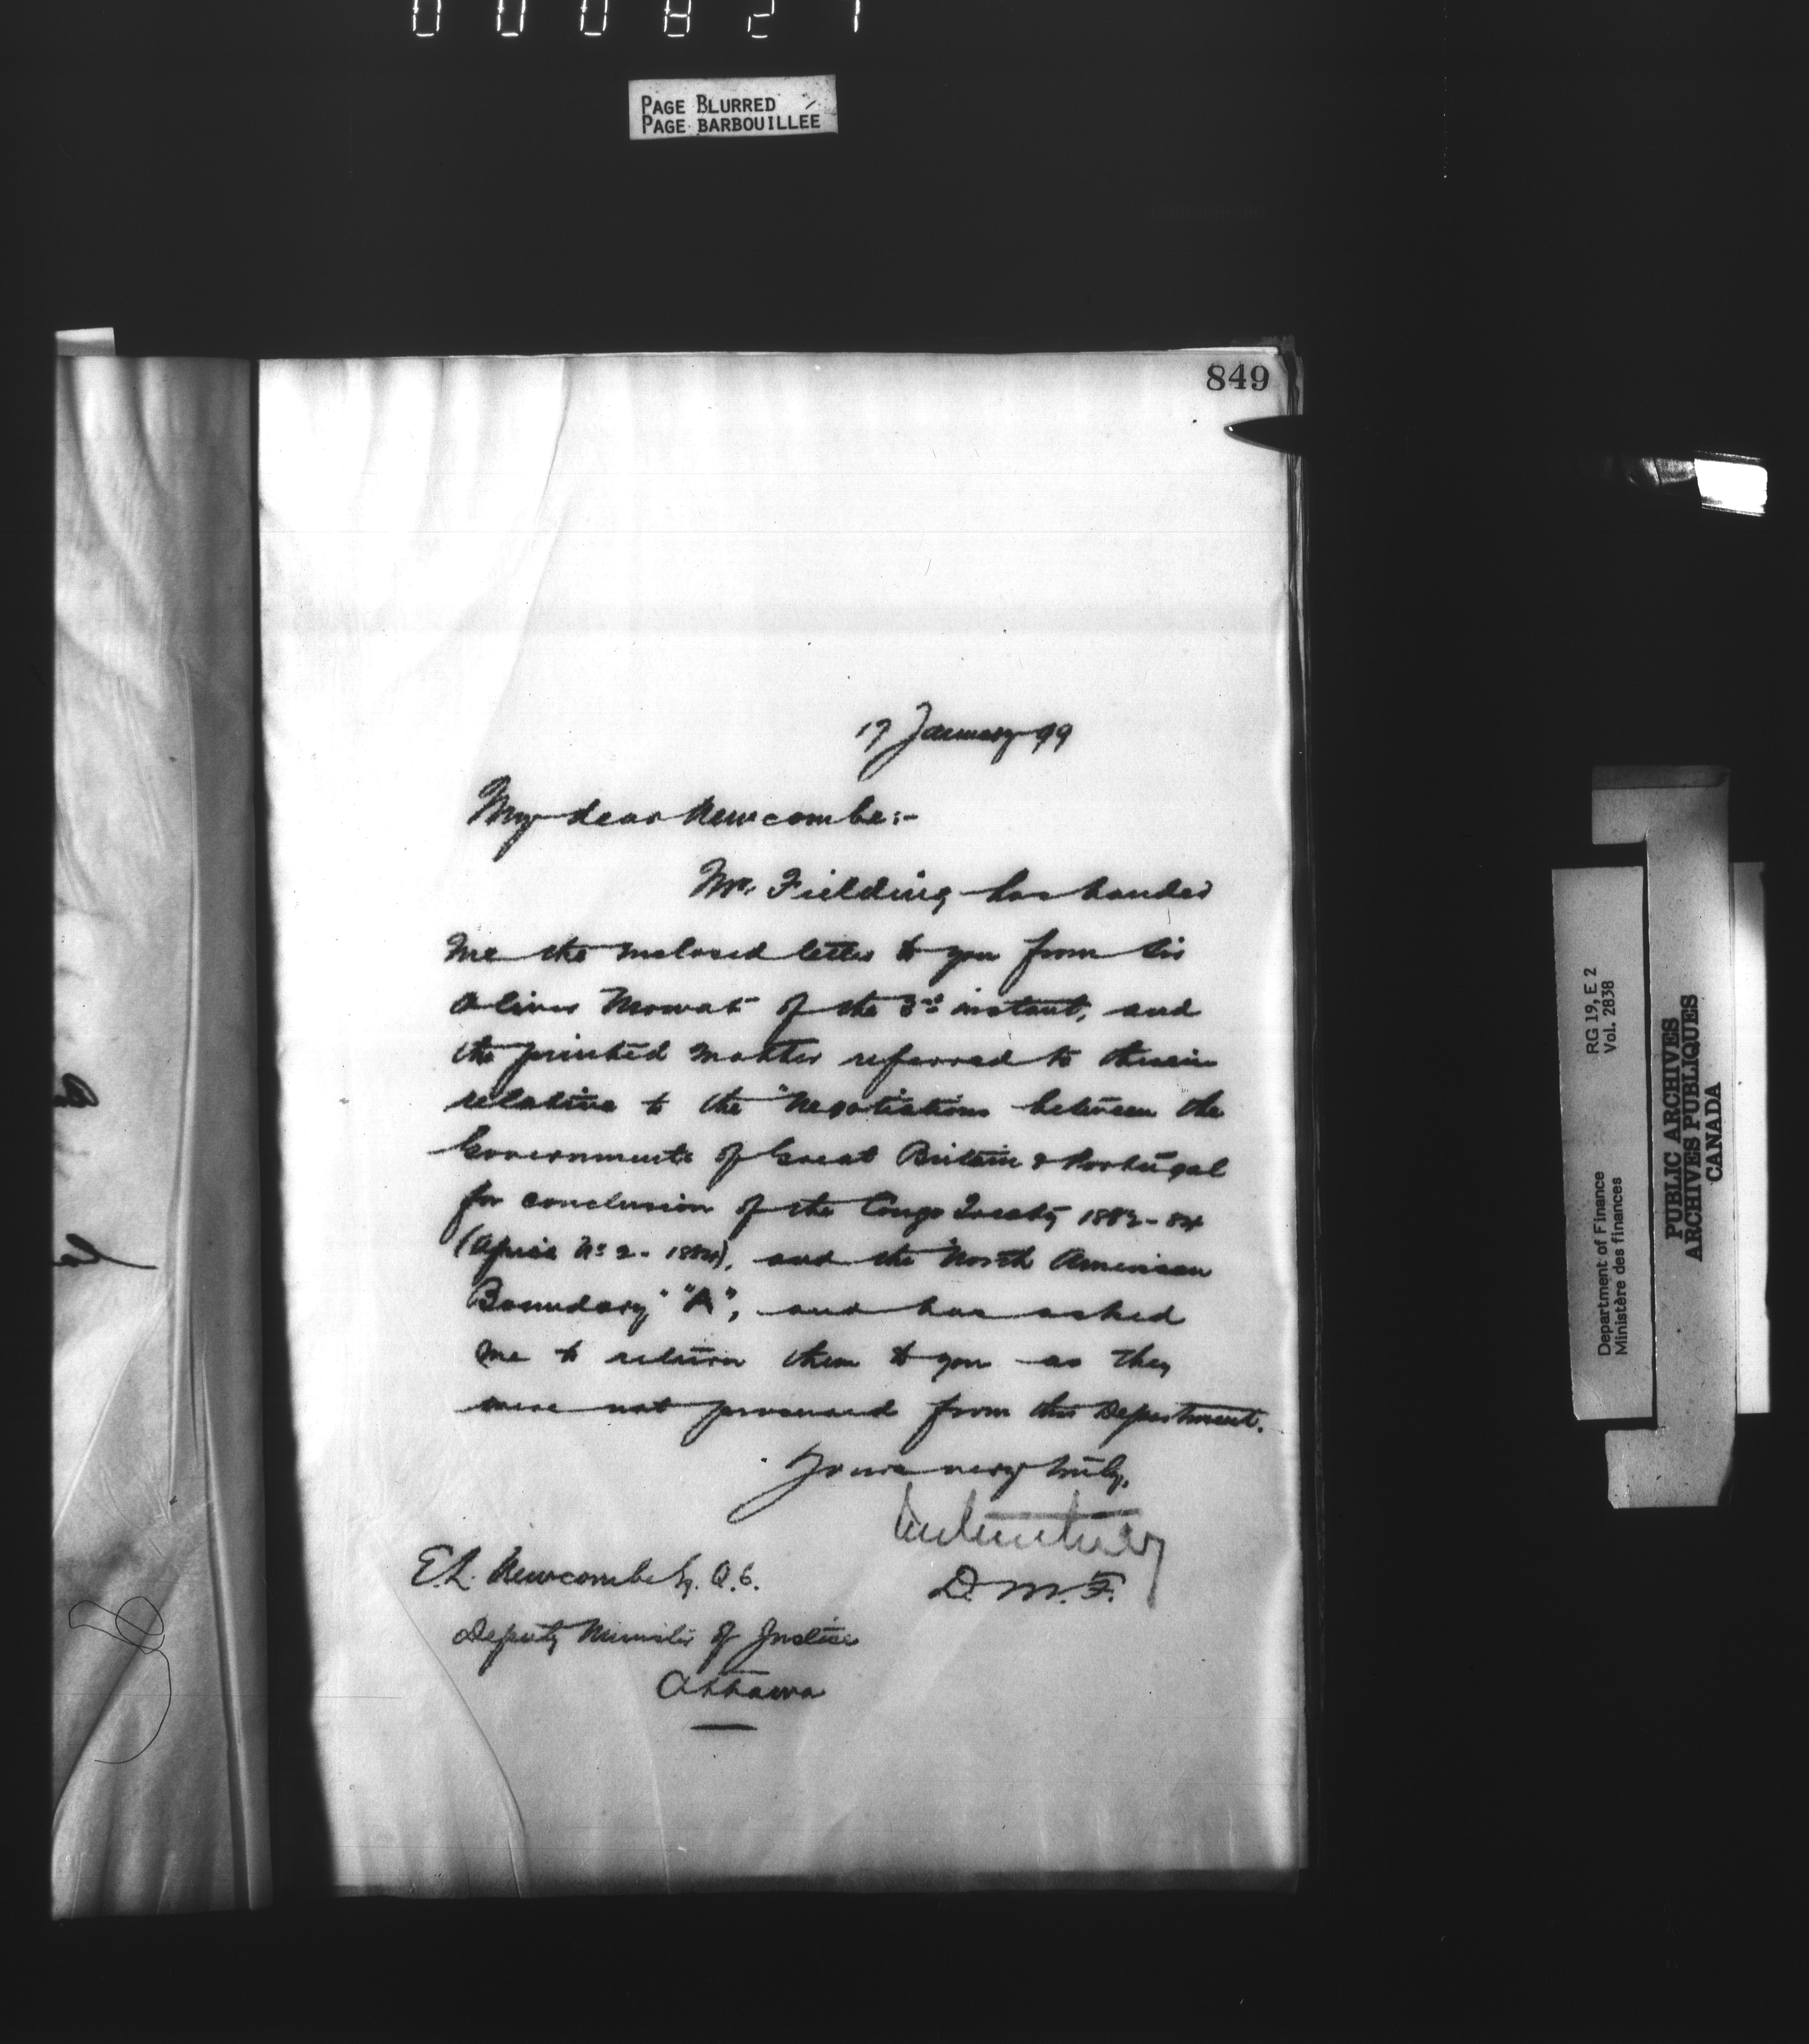 PAGE BLURRED
PAGE BARBOUILLEE
849
17 January 99
My dear Newcombe:-
Mr. Fielding has handed
me the inclosed letter to you from Sir
Oliver Mowat of the 3rd instant, and
the printed matter referred to therein
relative to the "Negotiations between the
Governments of Great Britain & Portugal
for conclusion of the Congo Treaty 1882-84
(Africa No 2 - 1884), and the "North American
Boundary" "A", and has asked
me to return them to you as they
were not procured from this Department.
Yours very truly,
D.M.F.
E.L. Newcombe Esq. Q.C.
Deputy Minister of Justice
Ottawa
RG 19, E 2
Vol. 2838
Department of Finance
Ministère des finances
PUBLIC ARCHIVES
ARCHIVES PUBLIQUES
CANADA